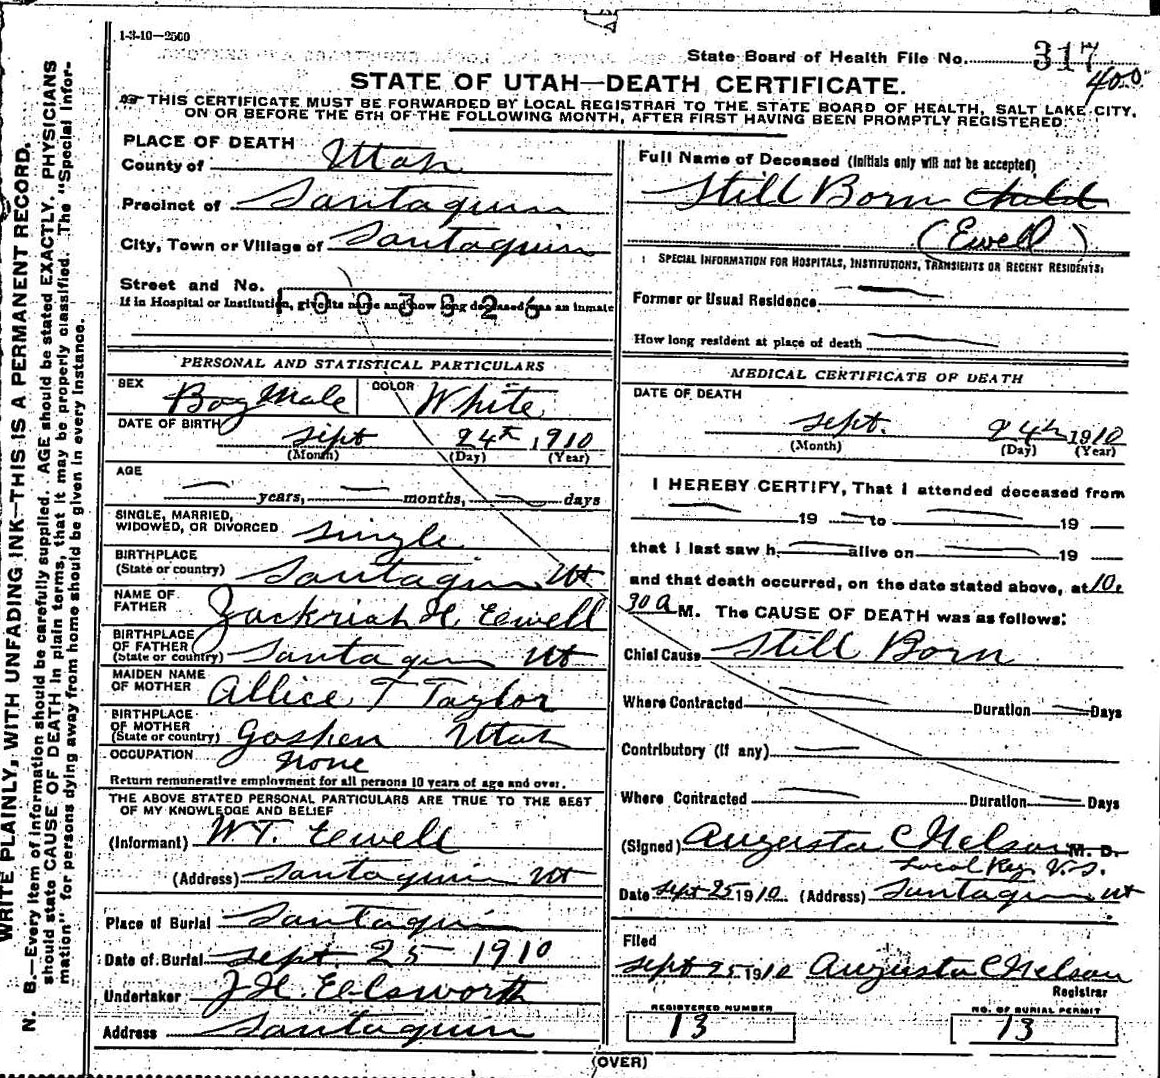 1-3-10—2500
State Board of Health File No. 317
400
STATE OF UTAH—DEATH CERTIFICATE.
THIS CERTIFICATE MUST BE FORWARDED BY LOCAL REGISTRAR TO THE STATE BOARD OF HEALTH, SALT LAKE CITY,
ON OR BEFORE THE 5TH OF THE FOLLOWING MONTH, AFTER FIRST HAVING BEEN PROMPTLY REGISTERED.
WRITE PLAINLY, WITH UNFADING INK—THIS IS A PERMANENT RECORD.
N. B.—Every item of information should be carefully supplied. AGE should be stated EXACTLY. PHYSICIANS
should state CAUSE OF DEATH in plain terms, that it may be properly classified. The "Special Infor-
mation" for persons dying away from home should be given in every instance.
PLACE OF DEATH
County of Utah
Precinct of Santaquin
City, Town or Village of Santaquin
Street and No.
If in Hospital or Institution, give its name and how long deceased was an inmate
1003926
PERSONAL AND STATISTICAL PARTICULARS
SEX Boy Male COLOR White
DATE OF BIRTH Sept 24th, 1910
(Month) (Day) (Year)
AGE
— years, — months, — days
SINGLE, MARRIED,
WIDOWED, OR DIVORCED Single
BIRTHPLACE
(State or country) Santaquin Ut
NAME OF
FATHER Zackriah H. Eewell
BIRTHPLACE
OF FATHER
(State or country) Santaquin Ut
MAIDEN NAME
OF MOTHER Allice T Taylor
BIRTHPLACE
OF MOTHER
(State or country) Goshen Utah
OCCUPATION None
Return remunerative employment for all persons 10 years of age and over.
THE ABOVE STATED PERSONAL PARTICULARS ARE TRUE TO THE BEST
OF MY KNOWLEDGE AND BELIEF
(Informant) W.T. Eewell
(Address) Santaquin Ut
Place of Burial Santaquin
Date of Burial Sept. 25 1910
Undertaker J.H. Eelsworth
Address Santaquin
Full Name of Deceased (Initials only will not be accepted)
Still Born Child
(Ewell)
SPECIAL INFORMATION FOR HOSPITALS, INSTITUTIONS, TRANSIENTS OR RECENT RESIDENTS:
Former or Usual Residence —
How long resident at place of death —
MEDICAL CERTIFICATE OF DEATH
DATE OF DEATH
Sept. 24th 1910
(Month) (Day) (Year)
I HEREBY CERTIFY, That I attended deceased from
— 19 — to — 19 —
that I last saw h — alive on — 19 —
and that death occurred, on the date stated above, at 10.
30 a M. The CAUSE OF DEATH was as follows:
Chief Cause Still Born
Where Contracted — Duration — Days
Contributory (if any) —
Where Contracted — Duration — Days
(Signed) Augusta C Nelson M. D.
Local Reg. V.S.
Date Sept 25 1910. (Address) Santaquin Ut
Filed
Sept 25 1910 Augusta C Nelson
Registrar
REGISTERED NUMBER
13
NO. OF BURIAL PERMIT
13
(OVER)